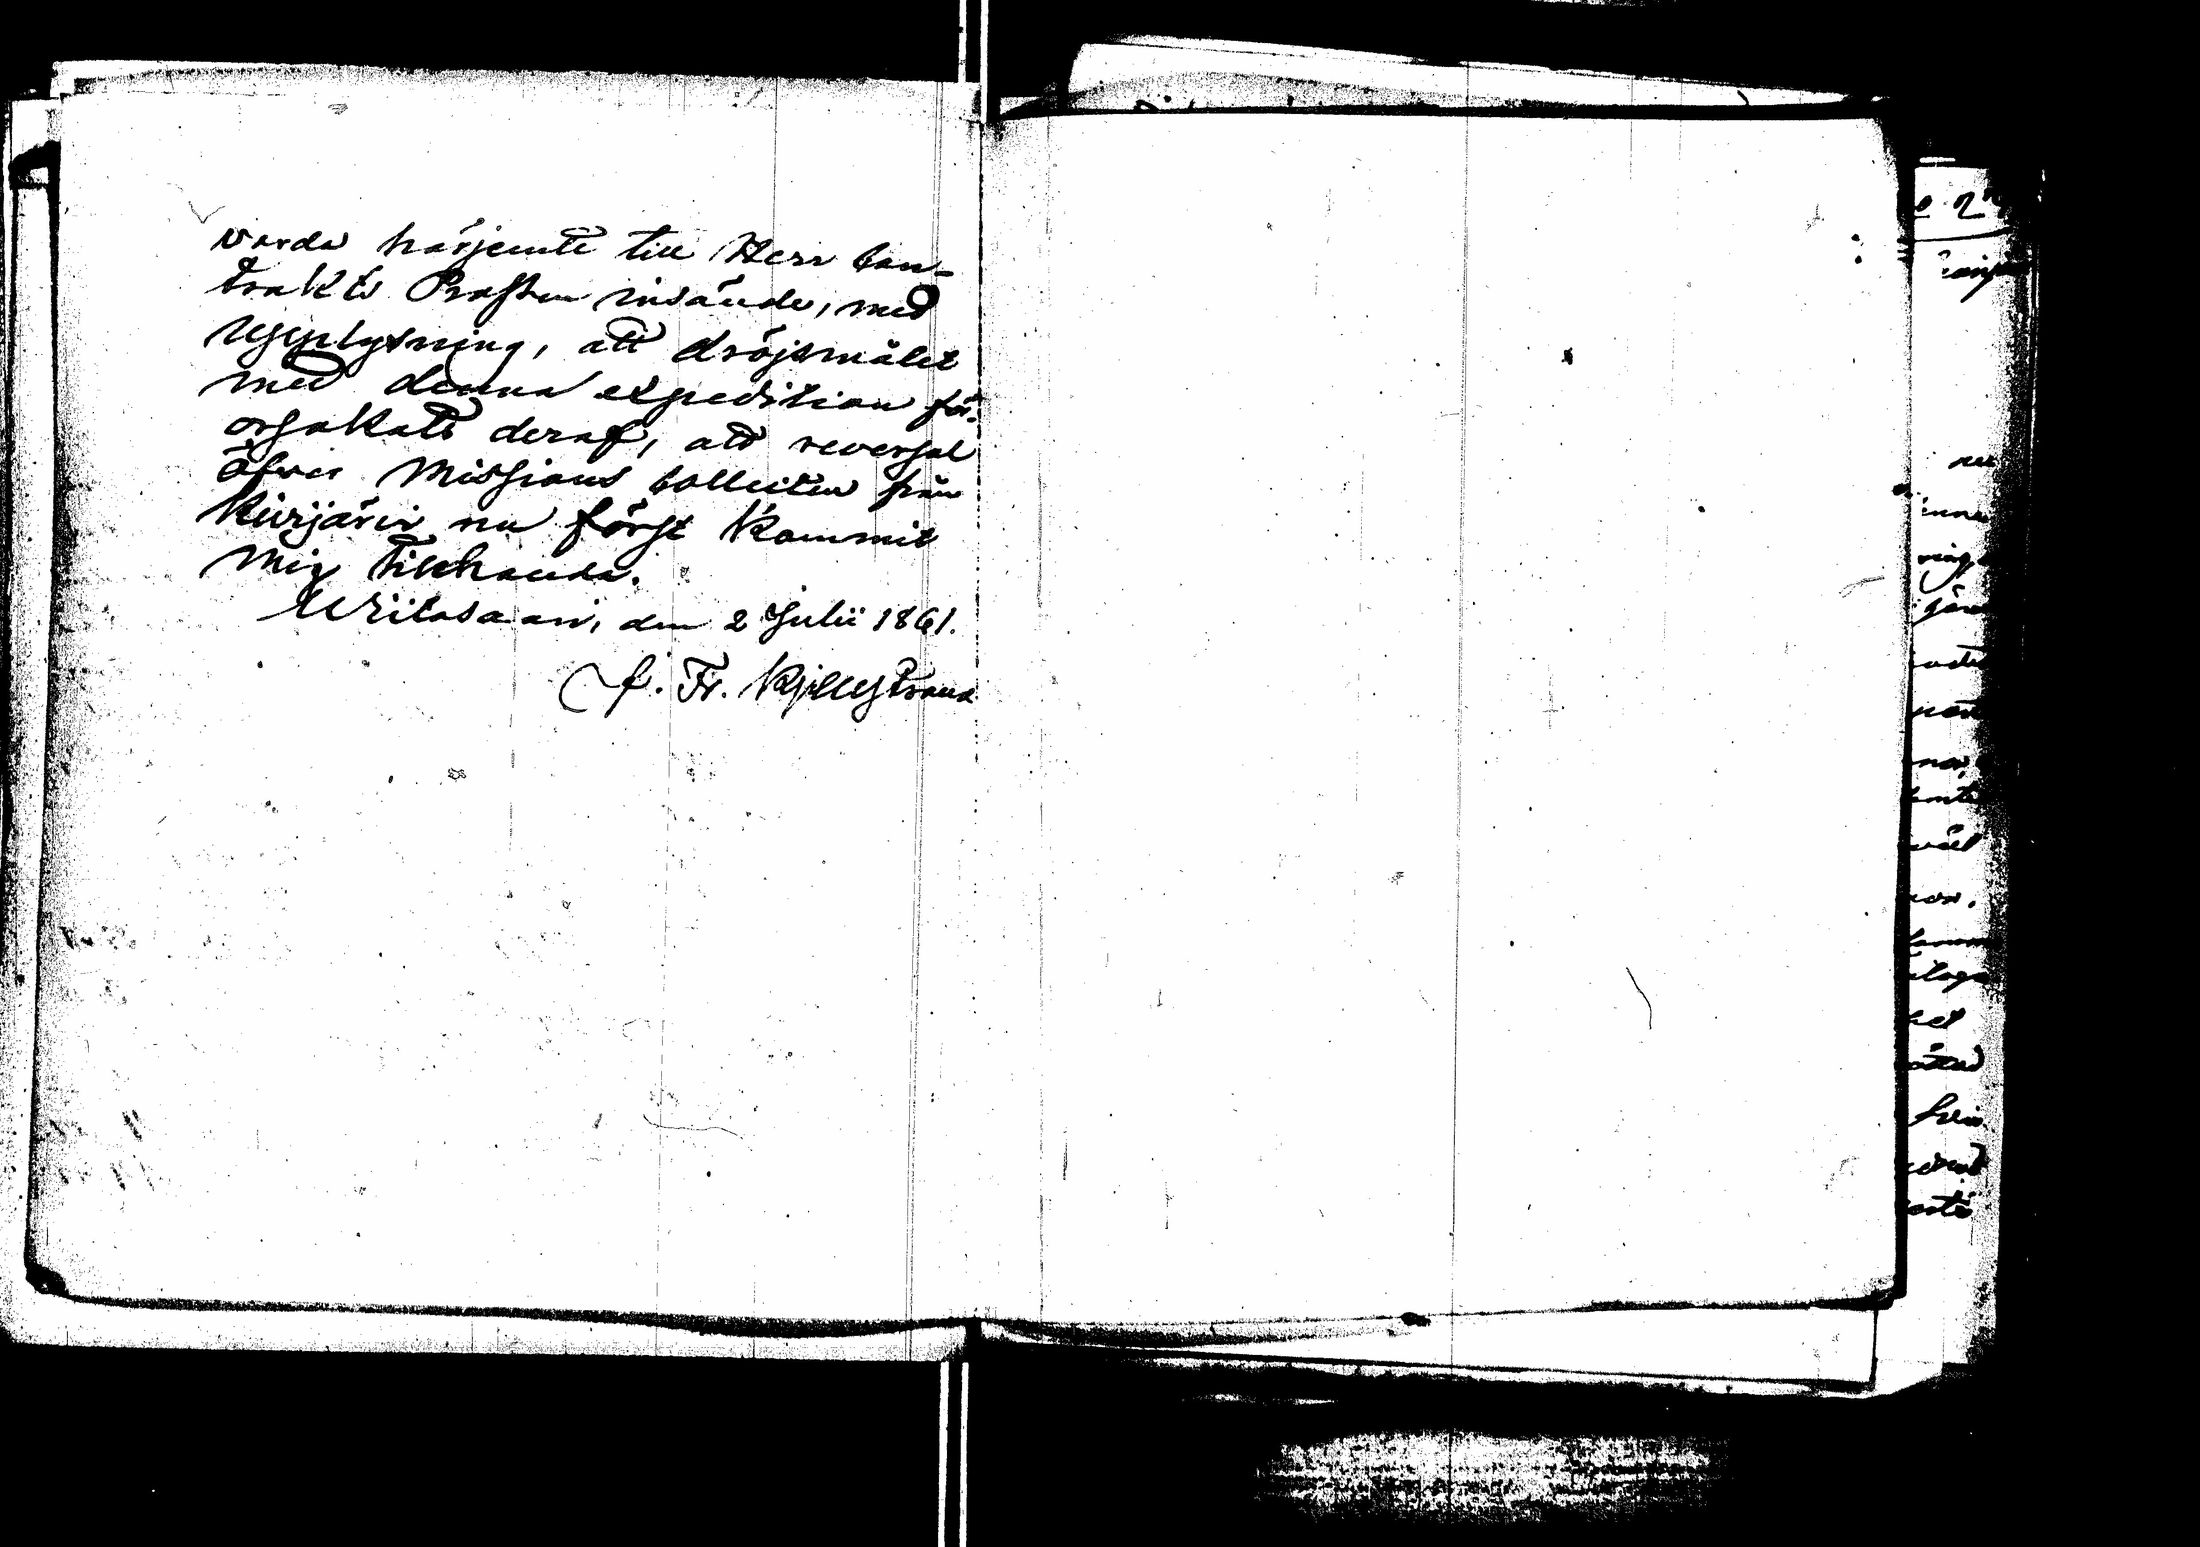 varda härjemte till Herr Con-
trakts Prosten insände, med
upplysning, att dröjsmålet
med denna expedition för-
orsakats deraf, att reversal
öfver Missions Collecten från
Kivijärvi nu först kommit
mig tillhanda.
Wiitasaari, den 2 Julii 1861.
Fr. Kjillgstrand